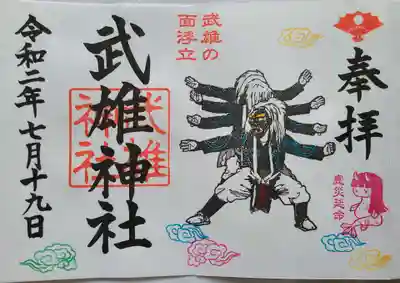 奉拝
武雄の
面浮立
武雄神社
武雄
神社
令和二年七月十九日